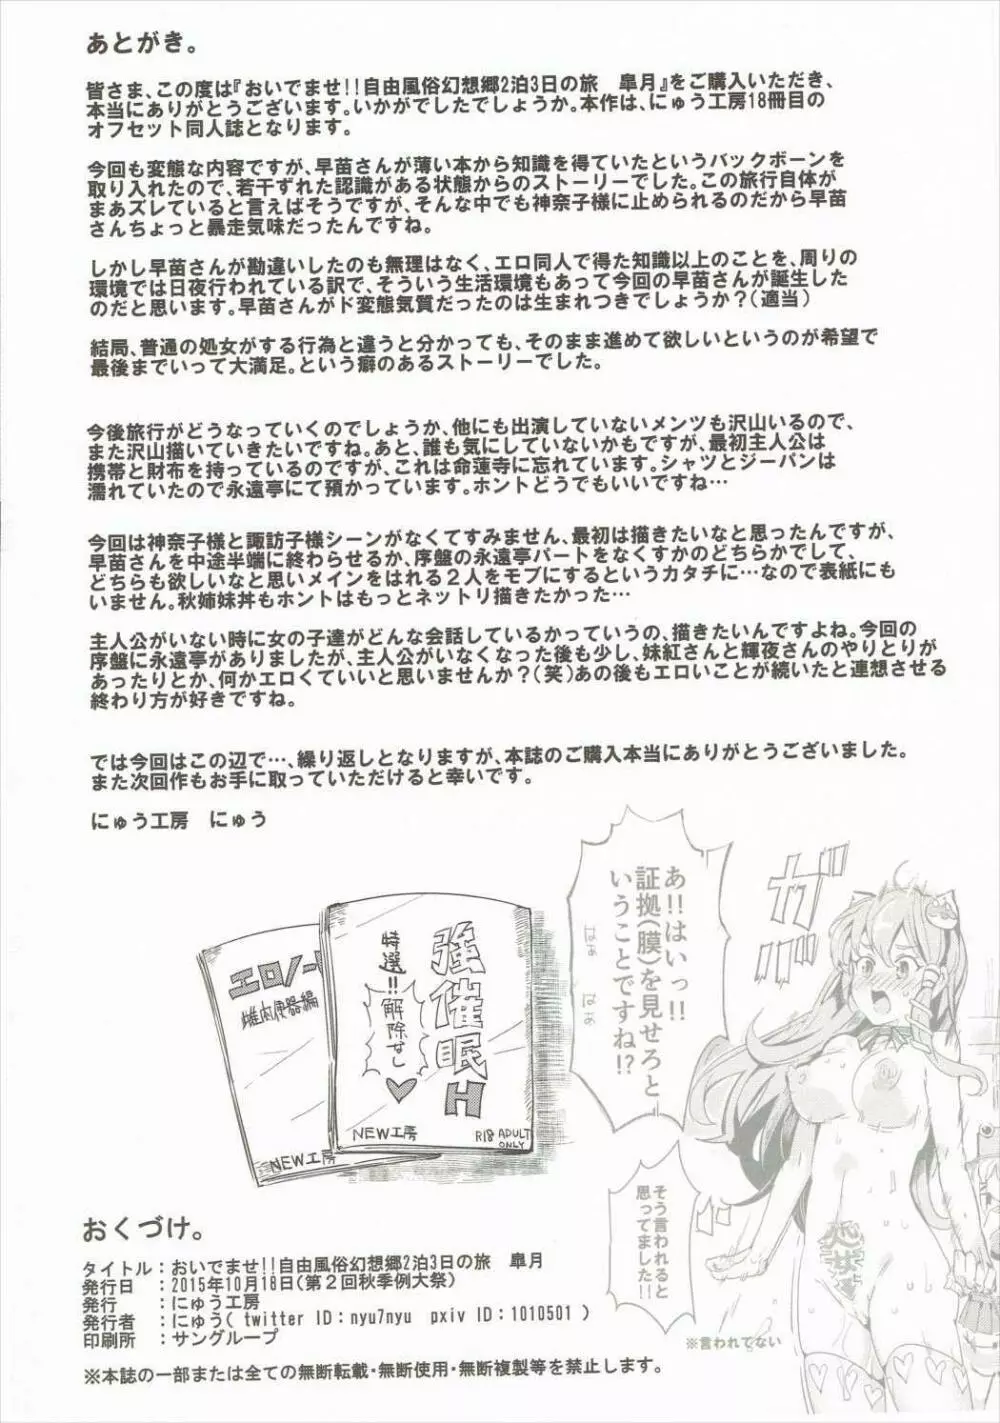 あとがき。
皆さま、この度は『おいでませ!!自由風俗幻想郷2泊3日の旅　皐月』をご購入いただき、
本当にありがとうございます。いかがでしたでしょうか。本作は、にゅう工房18冊目の
オフセット同人誌となります。
今回も変態な内容ですが、早苗さんが薄い本から知識を得ていたというバックボーンを
取り入れたので、若干ずれた認識がある状態からのストーリーでした。この旅行自体が
まあズレていると言えばそうですが、そんな中でも神奈子様に止められるのだから早苗
さんちょっと暴走気味だったんですね。
しかし早苗さんが勘違いしたのも無理はなく、エロ同人で得た知識以上のことを、周りの
環境では日夜行われている訳で、そういう生活環境もあって今回の早苗さんが誕生した
のだと思います。早苗さんがド変態気質だったのは生まれつきでしょうか？(適当)
結局、普通の処女がする行為と違うと分かっても、そのまま進めて欲しいというのが希望で
最後までいって大満足。という癖のあるストーリーでした。
今後旅行がどうなっていくのでしょうか、他にも出演していないメンツも沢山いるので、
また沢山描いていきたいですね。あと、誰も気にしていないかもですが、最初主人公は
携帯と財布を持っているのですが、これは命蓮寺に忘れています。シャツとジーパンは
濡れていたので永遠亭にて預かっています。ホントどうでもいいですね…
今回は神奈子様と諏訪子様シーンがなくてすみません、最初は描きたいなと思ったんですが、
早苗さんを中途半端に終わらせるか、序盤の永遠亭パートをなくすかのどちらかでして、
どちらも欲しいなと思いメインをはれる２人をモブにするというカタチに…なので表紙にも
いません。秋姉妹丼もホントはもっとネットリ描きたかった…
主人公がいない時に女の子達がどんな会話しているかっていうの、描きたいんですよね。今回の
序盤に永遠亭がありましたが、主人公がいなくなった後も少し、妹紅さんと輝夜さんのやりとりが
あったりとか、何かエロくていいと思いませんか？(笑)あの後もエロいことが続いたと連想させる
終わり方が好きですね。
では今回はこの辺で…、繰り返しとなりますが、本誌のご購入本当にありがとうございました。
また次回作もお手に取っていただけると幸いです。
にゅう工房　にゅう
ガバッ
あ!!はいっ!!
証拠(膜)を見せろと
いうことですね!?
はぁ
はぁ
強催眠H
特選!!解除なし♥
NEW工房
R18 ADULT
ONLY
エロノー
雌肉便器編
NEW工房
そう言われると
思ってました!!
処女
※言われてない
おくづけ。
タイトル：おいでませ!!自由風俗幻想郷2泊3日の旅　皐月
発行日　：2015年10月18日(第２回秋季例大祭)
発行　　：にゅう工房
発行者　：にゅう( twitter ID：nyu7nyu　pxiv ID：1010501 )
印刷所　：サングループ
※本誌の一部または全ての無断転載・無断使用・無断複製等を禁止します。